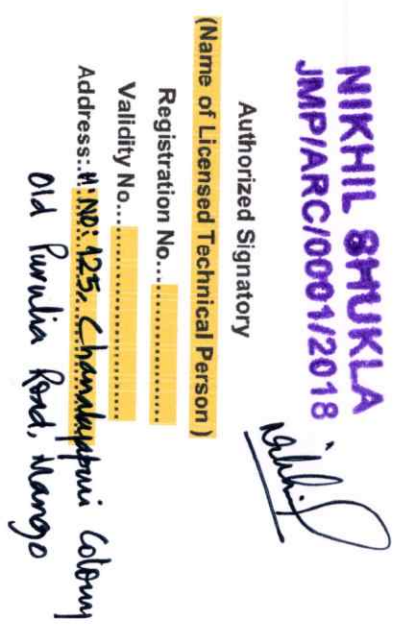 NIKHIL SHUKLA
JMP/ARC/0001/2018
Nikhil
Authorized Signatory
(Name of Licensed Technical Person )
Registration No....................
Validity No..............................
Address:.H.NO: 125, Chanakyapuri Colony
Old Purulia Road, Mango